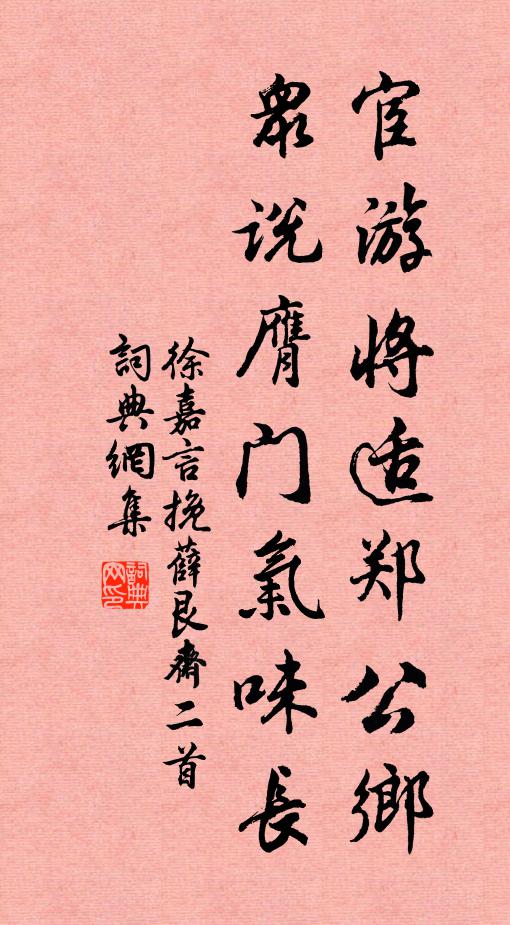 宦游将适郑公鄉
衆説膺门氣味長
徐嘉言挽薛艮齋二首
詞典網集
詞典网印